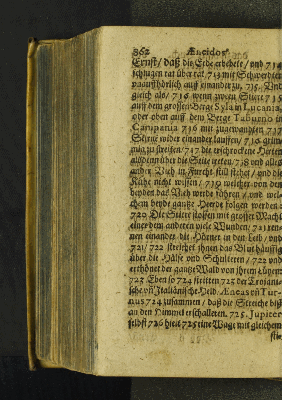 362 Æneidos
Ernst / daß die Erde erbebete / und 714
schlugen rat über rat 713 mit Schwerdten
unauffhörlich auff einander zu, 715. Und
gleich als / 716 wenn zween Stiere 715
auff dem grossen Berge Syla in Lucania,
oder oben auff dem Berge Taburno in
Campania 716 mit zugewandten 717
Stirne wider einander lauffen / 716 grim-
mig zu streiten / 717 die erschrockne Hirten
aber an die Seite treten / 718 und alles
ander Vieh in Furcht still stehet / und die
Kühe nicht wissen / 719 welcher von den
beyden das Vieh werde führen / und wel-
chem die gantze Heerde folgen werde.
720 Die Stiere stossen mit grosser Macht
einer dem anderen viele Wunden / 721 ren-
nen einander die Hörner in den Leib / und
721 / 722 streichet ihnen das Blut häuffig
über die Hälse und Schulteren / 722 und
erthönet der gantze Wald von ihrem
723 Eben so 724 stritten 723 der Trojani-
sche und Italiänische Held Æneas und Tur-
nus 724 zusammen / daß die Streiche biß
an den Himmel erschalleten. 725. Jupiter
selbst 726 hielt 725 eine Wage mit gleichem